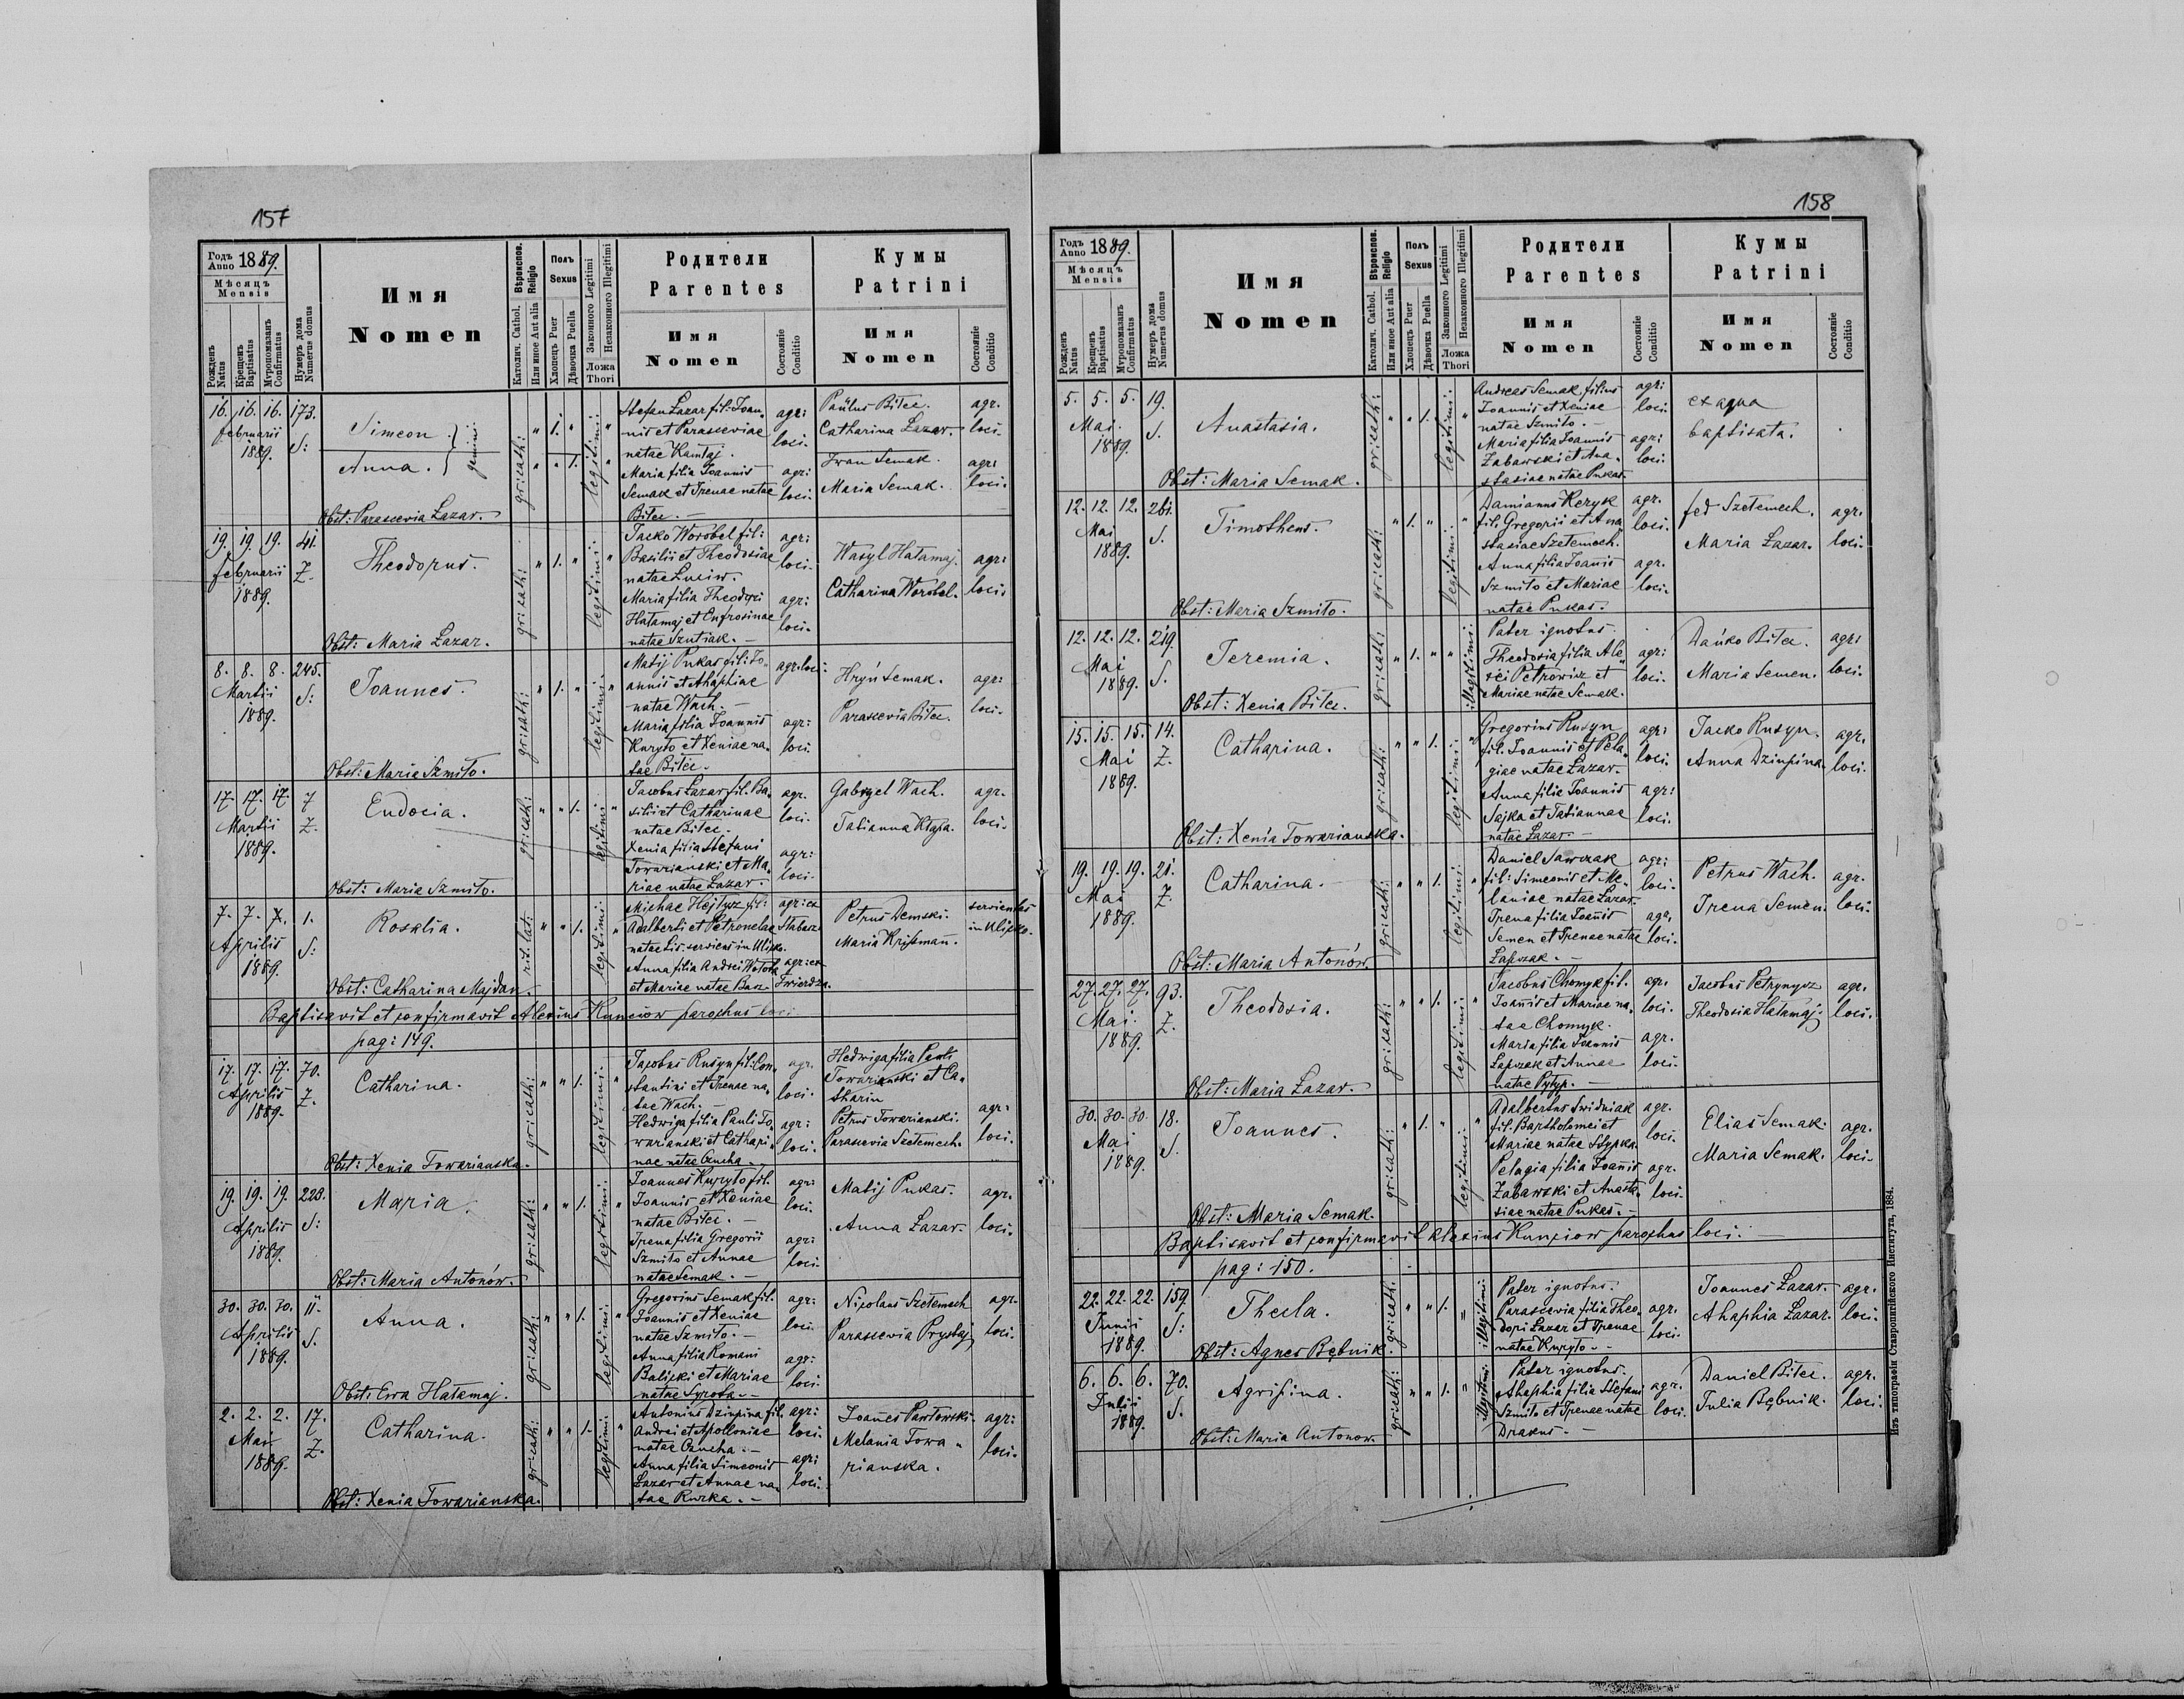 157
Годъ Anno 1889.
Мѣсяцъ
Mensis
Рожденъ Natus
Крещенъ Baptisatus
Мѵропомазанъ Confirmatus
Нумеръ дома Numerus domus
Имя
Nomen
Вѣроиспов. Religio
Католич. Cathol.
Или иное Aut alia
Полъ
Sexus
Хлопецъ Puer
Дѣвочка Puella
Законного Legitimi
Незаконного Illegitimi
Ложа
Thori
Родители
Parentes
Имя
Nomen
Состоянie Conditio
Кумы
Patrini
Имя
Nomen
Состоянie Conditio
16. 16. 16. 173.
februarii S:
1889.
Simeon.
Anna. } gemini
gr: cath:
legitimi:
Stefan Lazar fil: Joan„
nis et Parasceviae
natae
Maria filia Joannis
Semak et Irenae natae
Bitec. –
agr: loci.
agr: loci.
Paülus Bitec. agr.
Catharina Lazar. loci.
Iwan Semak. agr:
Maria Semak. loci.
Obst: Parascevia Lazar.
19. 19. 19. 41.
februarii Z.
1889.
Theodorus.
gr: cath:
legitimi:
Jacko Worobel fil:
Basilii et Theodosiae
natae Luciw.
Maria filia Theodori
Hatamaj et Eufrosinae
natae Szutiak. –
agr: loci.
agr: loci.
Wasyl Hatamaj. agr:
Catharina Worobel. loci.
Obst: Maria Lazar.
8. 8. 8. 245.
Martii S:
1889.
Joannes.
gr: cath:
legitimi.
Matij Pukas fil: Jo„
annis et Ahaphiae
natae Wach. –
Maria filia Joannis
Kuryto et Xeniae na„
tae Bitec.
agr. loci.
agr: loci
Hryń Semak. agr:
Parascevia Bitec. loci.
Obst: Maria Szmito.
17. 17. 17. 7
Martii Z.
1889.
Eudocia.
gr: cath:
legitimi:
Jacobus Lazar fil. Ba„
silii et Catharinae
natae Bitec.
Xenia filia Stefani
Towarianski et Ma„
riae natae Lazar.
agr. loci.
agr: loci.
Gabryel Wach. agr.
Tatianna loci.
Obst: Maria Szmito.
7. 7. 7. 1.
Aprilis S:
1889.
Rosalia.
rit. lat:
legitimi:
Michae fil:
Adalberti et Petronelae
natae Lis. serviens in Ulicko.
Anna filia Andrei
et Mariae natae
agr: ex
agr: ex
Petrus Demski. servientes
Maria in Ulicko.
Obst: Catharina Majdan.
Baptisavit et confirmavit Alexius Kunciow parochus loci
pag: 149.
17. 17. 17. 70.
Aprilis Z.
1889.
Catharina.
gr: cath:
legitimi:
Jacobus Rusyn fil: Con„
stantini et Irenae na„
tae Wach. –
Hedwiga filia Pauli To„
warianski et Cathari„
nae natae
agr. loci.
agr: loci.
Hedwiga filia Pauli
Towarianski et Ca„
tharin
Petrus Towarianski. agr:
Parascevia Szetemech. loci.
Obst: Xenia Towarianska.
19. 19. 19. 223.
Aprilis S:
1889.
Maria.
gr: cath:
legitimi:
Joannes Kuryto fil.
Joannis et Xeniae
natae Bitec. –
Irena filia Gregorii
Szmito et Annae
natae Semak. –
agr: loci.
agr: loci.
Matij Pukas. agr.
Anna Lazar. loci.
Obst: Maria Antonów.
30. 30. 30. 11.
Aprilis S.
1889.
Anna.
gr: cath:
legitimi:
Gregorius Semak fil.
Joannis et Xeniae
natae Szmito. –
Anna filia Romani
Balicki et Mariae
natae Syrota. –
agr: loci
agr: loci.
Nicolaus Szetemech agr.
Parascevia Prystaj loci.
Obst: Eva Hatamaj.
2. 2. 2. 17.
Mai Z.
1889.
Catharina.
gr: cath:
legitimi.
Antonius Dziupina fil.
Andrei et Apolloniae
natae
Anna filia Simeonis
Lazar et Annae na„
tae Rurka. –
agr: loci.
agr: loci.
Joannes Pawłowski. agr:
Melania Towa„ loci.
rianska.
Obst: Xenia Towarianska.
158
Годъ Anno 1889.
Мѣсяцъ
Mensis
Рожденъ Natus
Крещенъ Baptisatus
Мѵропомазанъ Confirmatus
Нумеръ дома Numerus domus
Имя
Nomen
Вѣроиспов. Religio
Католич. Cathol.
Или иное Aut alia
Полъ
Sexus
Хлопецъ Puer
Дѣвочка Puella
Законного Legitimi
Незаконного Illegitimi
Ложа
Thori
Родители
Parentes
Имя
Nomen
Состоянie Conditio
Кумы
Patrini
Имя
Nomen
Состоянie Conditio
5. 5. 5. 19.
Mai. S.
1889.
Anastasia.
gr: cath:
legitimi:
Andreas Semak filius
Joannis et Xeniae
natae Szmito. –
Maria filia Joannis
Zabawski et Ana„
stasiae natae Pukas.
agr: loci.
agr: loci.
ex aqua
baptisata.
Obst: Maria Semak.
12. 12. 12. 261.
Mai S.
1889.
Timotheus.
gr: cath:
legitimi:
Damianus Keryk
fil. Gregorii et Ana„
stasiae Szetemech.
Anna filia Joannis
Szmito et Mariae
natae Pukas.
agr. loci.
agr. loci.
fed Szetemech. agr.
Maria Lazar. loci.
Obst: Maria Szmito.
12. 12. 12. 219.
Mai S.
1889.
Jeremia.
gr: cath:
illegitimi:
Pater ignotus
Theodosia filia Ale„
xei Petrowicz et
Mariae natae Semak.
agr: loci.
Dańko Bitec. agr:
Maria Semen. loci.
Obst: Xenia Bitec.
15. 15. 15. 14.
Mai Z.
1889.
Catharina.
gr: cath:
legitimi:
Gregorius Rusyn
fil. Joannis et Pela„
giae natae Lazar.
Anna filia Joannis
Sajka et Tatiannae
natae Lazar. –
agr: loci.
agr: loci.
Jacko Rusyn. agr.
Anna Dziupina. loci.
Obst: Xenia Towarianska.
19. 19. 19. 21.
Mai Z.
1889.
Catharina.
gr: cath:
legitimi:
Daniel Sawczak
fil: Simeonis et Me„
laniae natae Lazar.
Irena filia Joannis
Semen et Irenae natae
Lapczak. –
agr: loci.
agr. loci.
Petrus Wach. agr.
Irena Semen. loci.
Obst: Maria Antonów.
27. 27. 27. 93.
Mai. Z.
1889.
Theodosia.
gr: cath:
legitimi:
Jacobus Chomyk fil.
Joannis et Mariae na„
tae Chomyk.
Maria filia Joannis
Lapczak et Annae
natae Pytyp. –
agr. loci.
agr. loci.
Jacobus Petrynycz agr.
Theodosia Hatamaj. loci.
Obst: Maria Lazar.
30. 30. 30. 18.
Mai S.
1889.
Joannes.
gr: cath:
legitimi:
Adalbertus Swidniak
fil. Bartholomei et
Mariae natae
Pelagia filia Joannis
Zabawski et Anasta„
siae natae Pukas. –
agr. loci.
agr. loci.
Elias Semak. agr.
Maria Semak. loci.
Obst: Maria Semak.
Baptisavit et confirmavit Alexius Kunciow parochus loci.
pag: 150.
22. 22. 22. 159.
Junii S:
1889.
Thecla.
gr: cath:
illegitimi:
Pater ignotus.
Parascevia filia Theo„
dori Lazar et Irenae
natae Kuryto. –
agr. loci.
Joannes Lazar. agr.
Ahaphia Lazar. loci.
Obst: Agnes Bębnik.
6. 6. 6. 70.
Julii S.
1889.
Agrifina.
gr: cath:
illegitimi:
Pater ignotus.
Ahaphia filia Stefani
Szmito et Irenae natae
Drakus. –
agr. loci.
Daniel Bitec. agr.
Julia Bębnik. loci.
Obst: Maria Antonow.
Изъ типографiи Ставропигiйского Института, 1884.